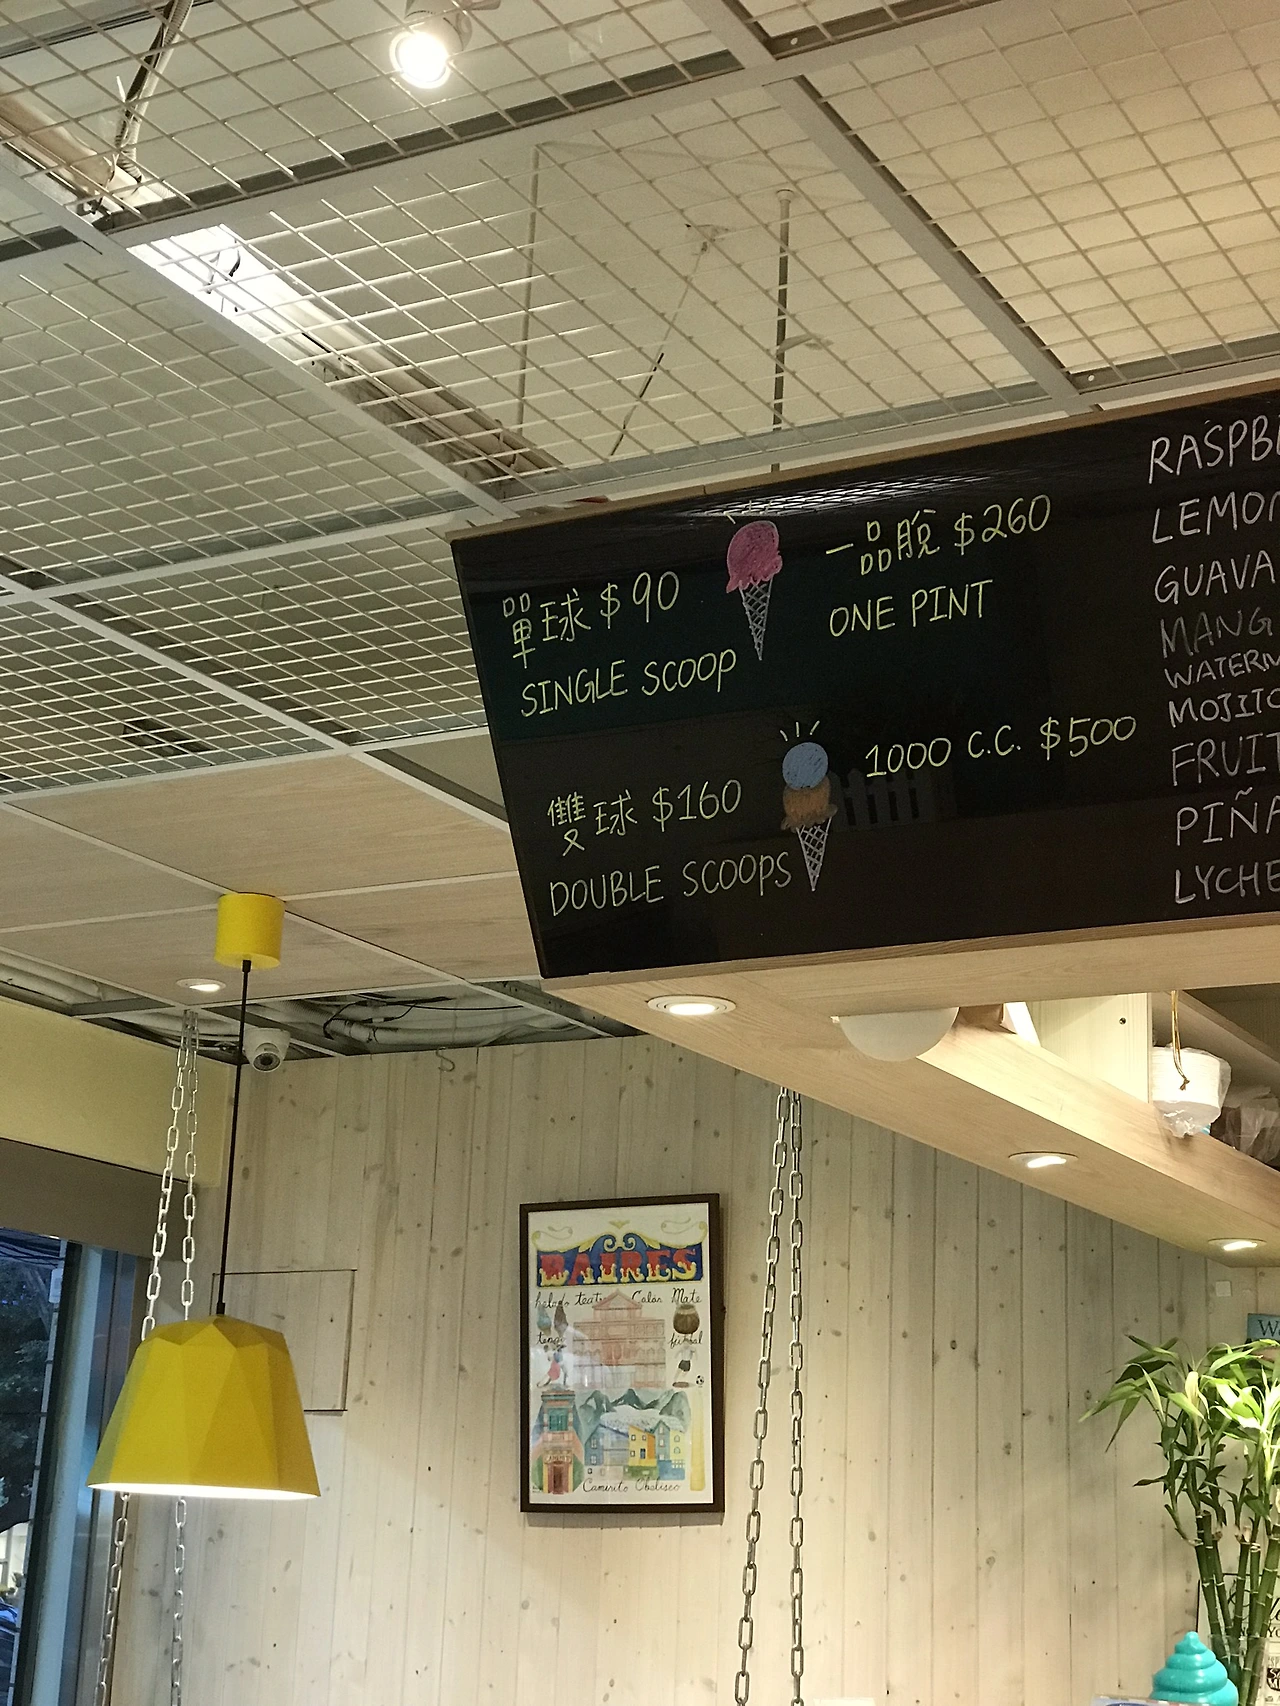 單球 $90
SINGLE SCOOP
一品脫 $260
ONE PINT
雙球 $160
DOUBLE SCOOPS
1000 C.C. $500
RASPBE
LEMON
GUAVA
MANG
WATERM
MOJITO
FRUIT
PIÑA
LYCHE
BAIRES
helado teatro Colón Mate
tango futbal
Caminito Obelisco